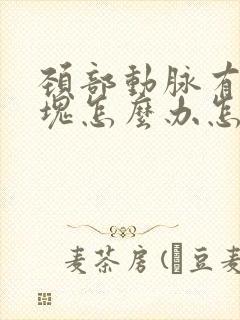 頚部動脉有
塊怎麼办怎
麦茶房(豆麦